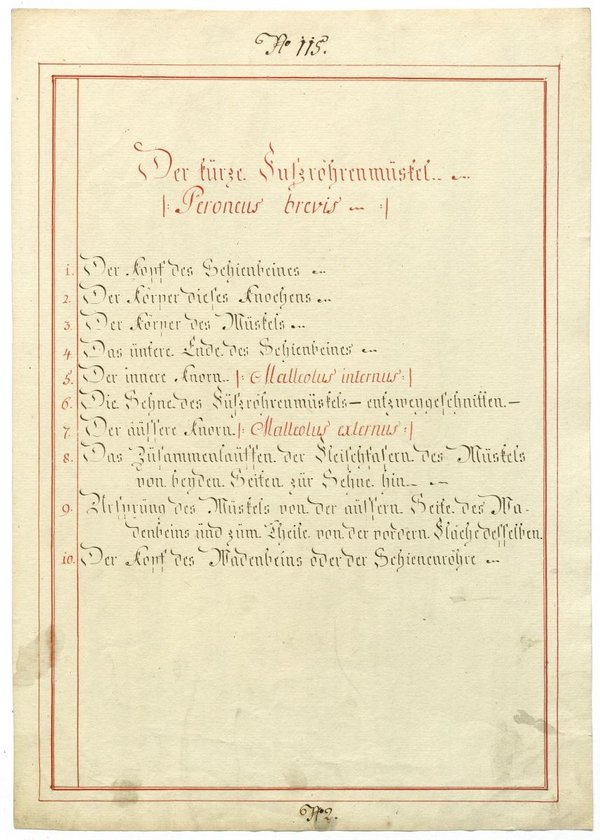 No 115.
Der kurze Fußröhrenmuskel.
|: Peroneus brevis :|
1. Der Kopf des Schienbeines
2. Der Körper dieses Knochens
3. Der Körper des Muskels
4. Das untere Ende des Schienbeines
5. Der innere Knorn. |: Malleolus internus :|
6. Die Sehne des Fußröhrenmuskels – entzweygeschnitten. –
7. Der äussere Knorn. |: Malleolus externus :|
8. Das Zusammenlauffen der Fleischfasern des Muskels
von beyden Seiten zur Sehne hin
9. Ursprung des Muskels von der äussern Seite des Wa-
denbeins und zum Theile von der vordern Fläche desselben.
10. Der Kopf des Wadenbeins oder der Schienenröhre
No 2.